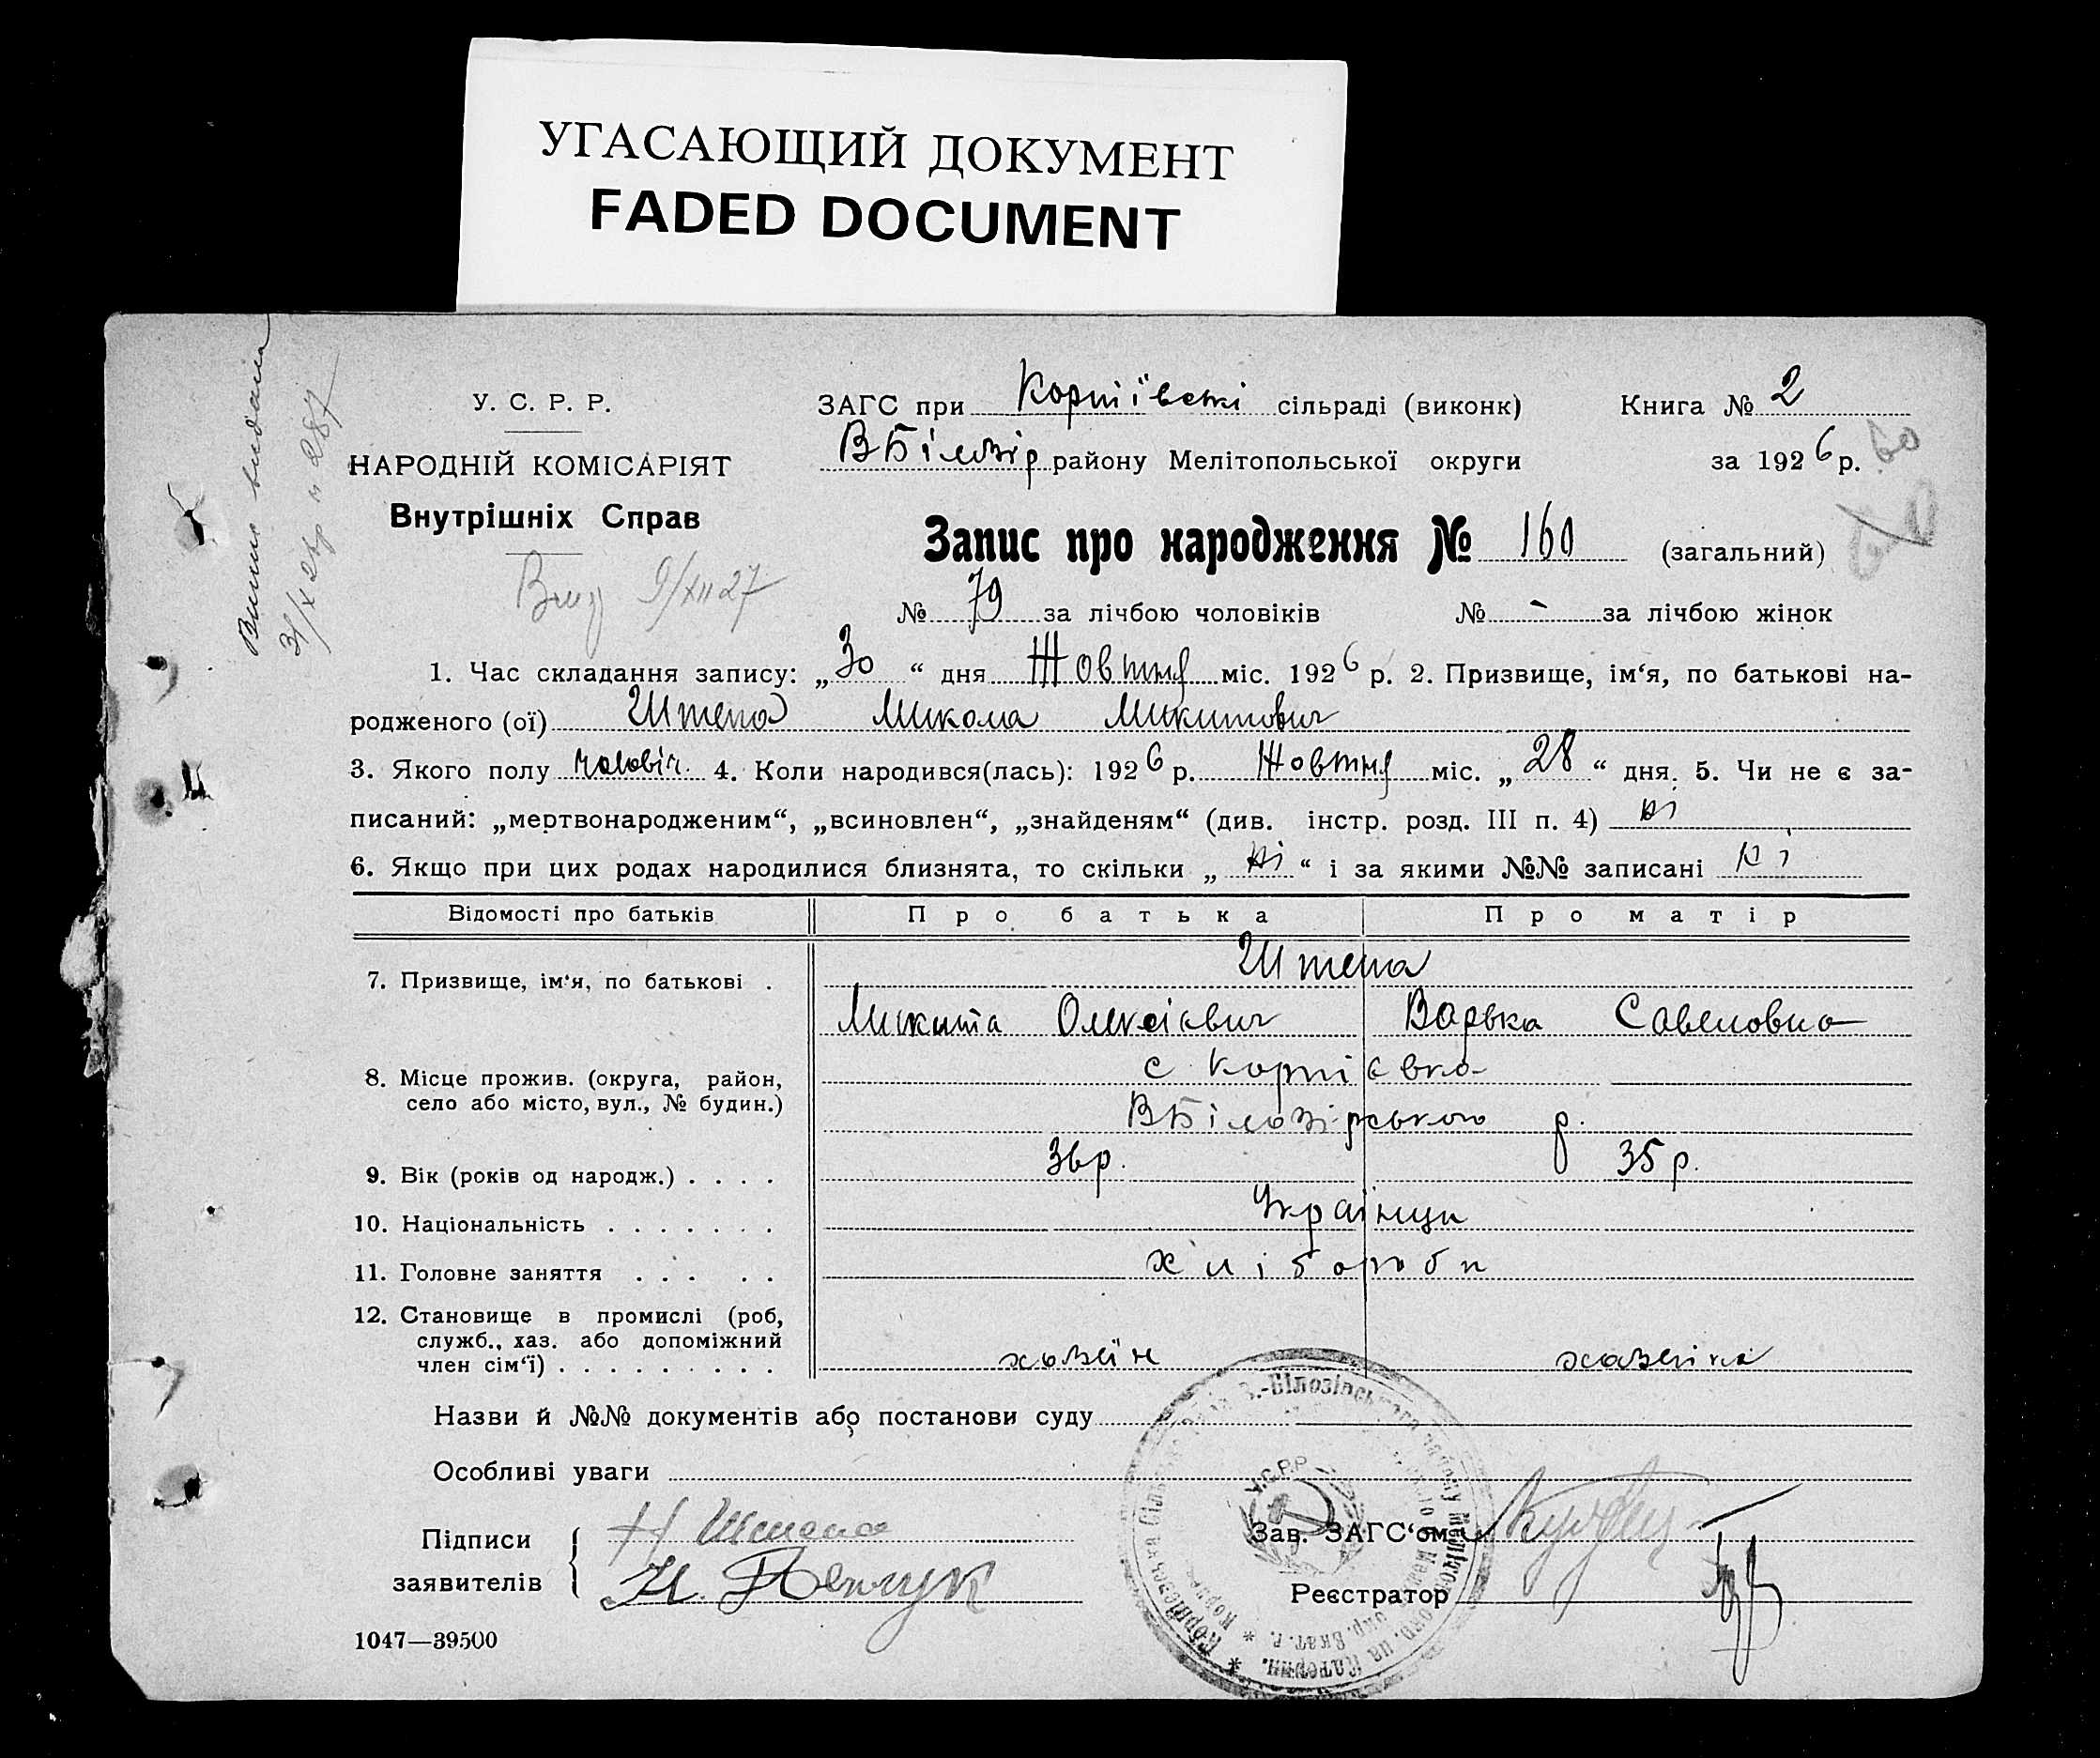 УГАСАЮЩИЙ ДОКУМЕНТ
FADED DOCUMENT
У. С. Р. Р.
НАРОДНІЙ КОМІСАРІЯТ
Внутрішніх Справ
9/XII 27
ЗАГС при Корніївські сільраді (виконк)
ВБілозір району Мелітопольської округи
Книга № 2
за 1926 р.
Запис про народження № 160 (загальний)
№ 79 за лічбою чоловіків № - за лічбою жінок
1. Час складання запису: „30“ дня Жовтня міс. 1926 р. 2. Призвище, ім‘я, по батькові на-
родженого (ої) Штепа Микола Микитович
3. Якого полу чоловіч. 4. Коли народився(лась): 1926 р. Жовтня міс. „28“ дня. 5. Чи не є за-
писаний: „мертвонародженим“, „всиновлен“, „знайденям“ (див. інстр. розд. III п. 4) ні
6. Якщо при цих родах народилися близнята, то скільки „ні“ і за якими №№ записані ні
Відомості про батьків Про батька Про матір
7. Призвище, ім‘я, по батькові . Штепа
Микита Олексієвич Варька Савеловна
8. Місце прожив. (округа, район, с Корнієвка
село або місто, вул., № будин.) ВБілозірського р.
9. Вік (років од народж.) . . . . 36р. 35р.
10. Національність . . . . . . . Українци
11. Головне заняття . . . . . хлібороби
12. Становище в промислі (роб,
служб., хаз. або допоміжний
член сім‘ї) . . . . . . . . . хозяїн хазяїка
Назви й №№ документів або постанови суду
Особливі уваги
Підписи Н Штепа
заявителів
Зав. ЗАГС‘ом
Реєстратор
У.С.Р.Р.
1047—39500